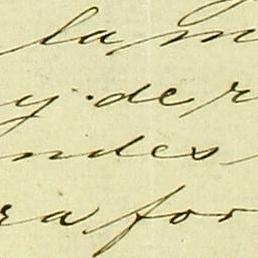 la m
y de r
ndes
ra for